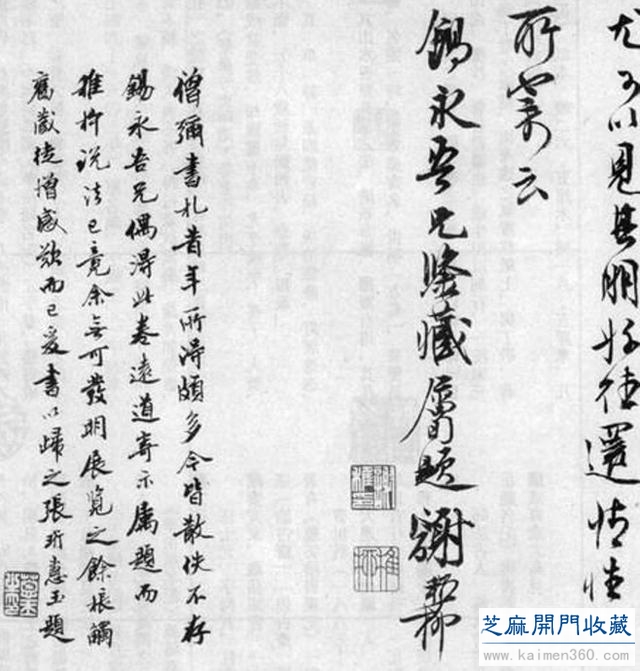 尤可以見其朋好往還情性
所寄云
錫永吾兄藏屬題謝稚柳
僧彌書札昔年所得頗多今皆散佚不存
錫永吾兄偶得此卷遠道寄示屬題而
稚柳說法已竟余無可發明展覽之餘棖觸
舊藏徒增感歎而已爰書以歸之張珩蔥玉題
芝麻開門收藏
www.kaimen360.com